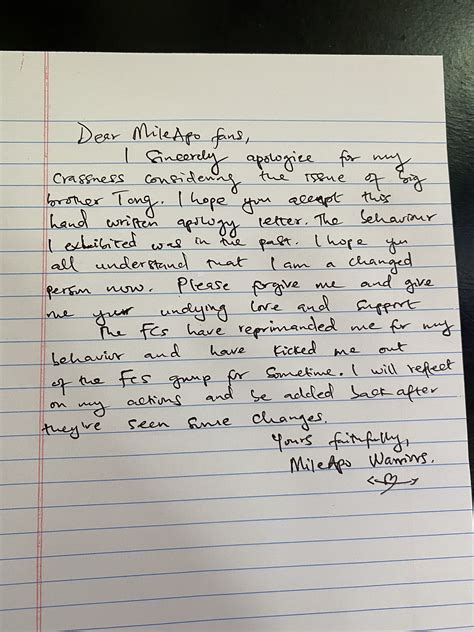 Dear MileApo fans,
I Sincerely apologise for my
crassness considering the issue of big
brother Tong. I hope you accept this
hand written apology letter. The behaviour
I exhbibited was in the past. I hope you
all understand that I am a changed
person now. Please forgive me and give
me your undying love and support
The FCs have reprimanded me for my
behavior and have kicked me out
of the FCs group for sometime. I will reflect
on my actions and be added back after
they're seen some changes.
Yours faithfully,
MileApo Warriors.